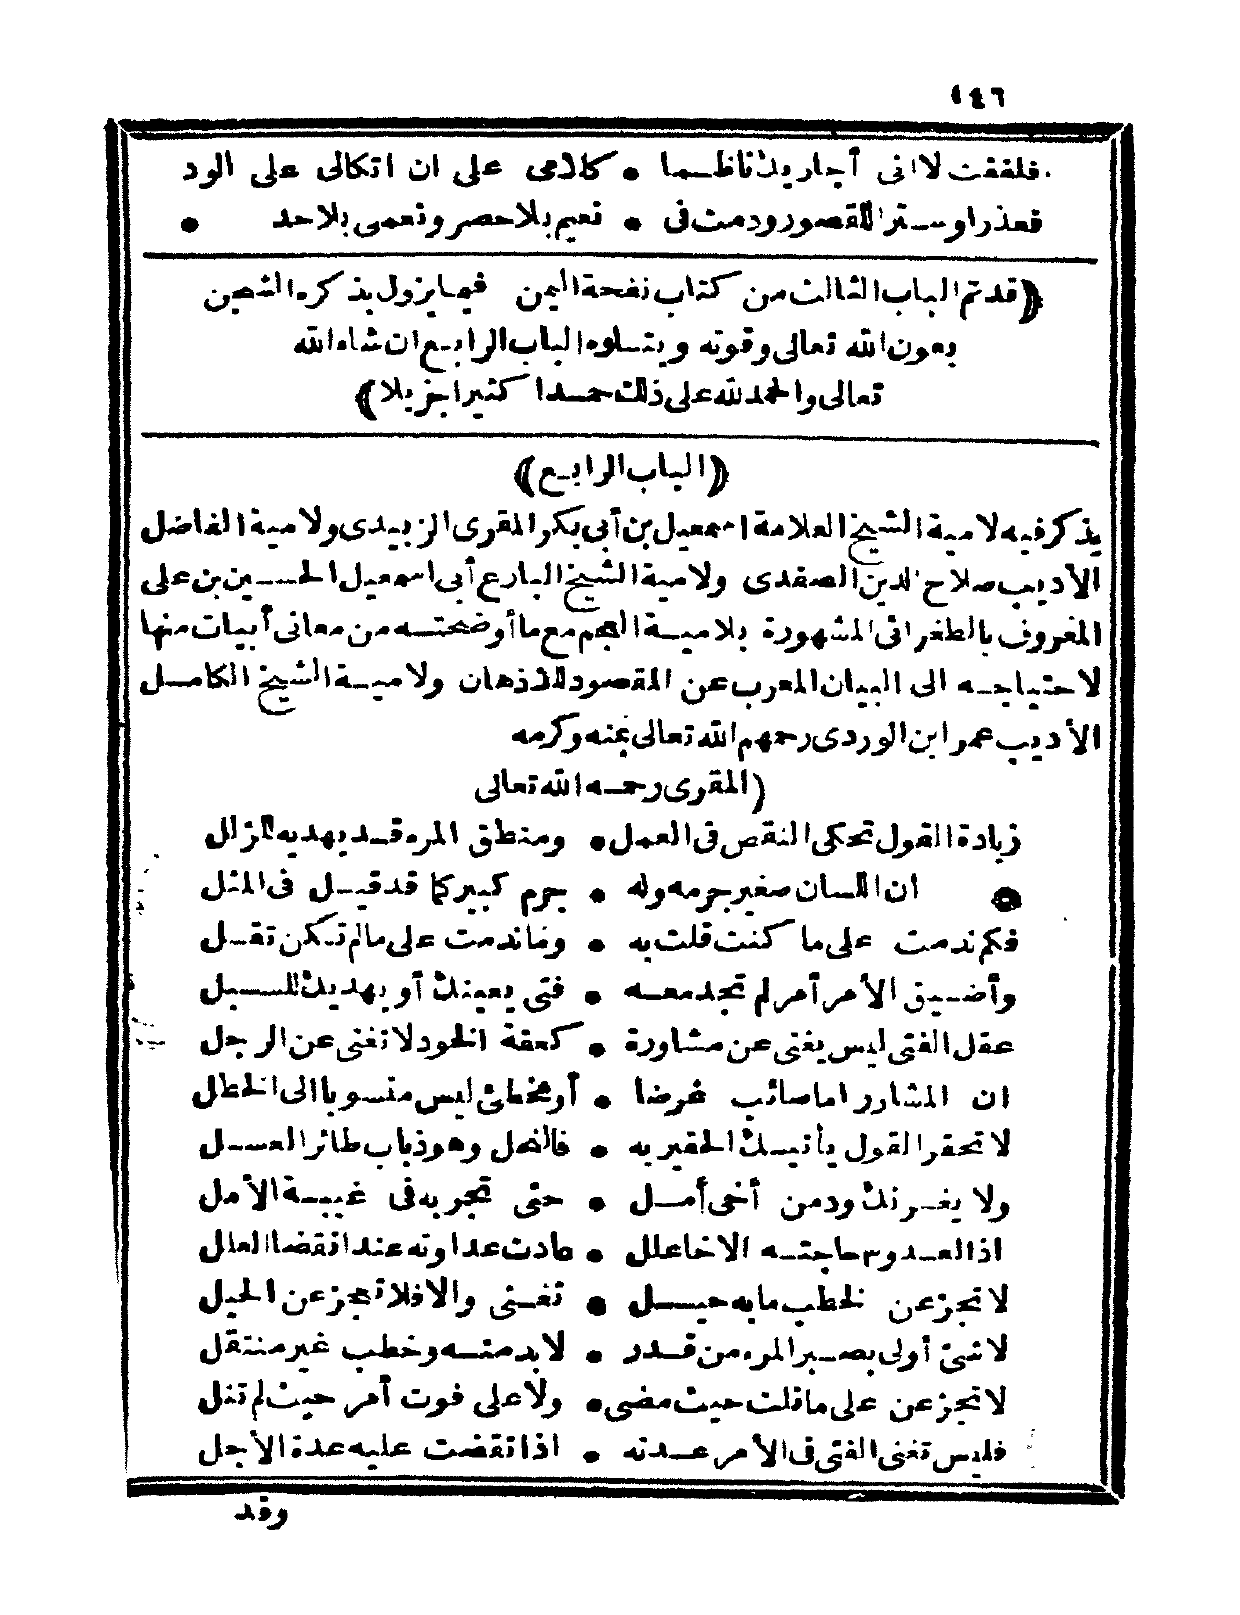 ١٤٦
فلفقت لا انى أجاريك ناظما • كلامى على ان اتكالى على الود
فعذرا وسترا للقصور ودمت فى • نعيم بلا حصر ونعمى بلا حد •
﴿قد تم الباب الثالث من كتاب نفحة اليمن فيما يزول بذكره الشجن
بعون الله تعالى وقوته ويتلوه الباب الرابع ان شاء الله
تعالى والحمد لله على ذلك حمدا كثيرا جزيلا﴾
﴿الباب الرابع﴾
يذكر فيه لامية الشيخ العلامة اسمعيل بن أبى بكر المقرى الزبيدى ولامية الفاضل
الأديب صلاح الدين الصفدى ولامية الشيخ البارع أبى اسمعيل الحسين بن على
المعروف بالطغرائى المشهورة بلامية العجم مع ما أوضحته من معانى أبيات منها
لاحتياجه الى البيان المعرب عن المقصود للاذهان ولامية الشيخ الكامل
الأديب عمر ابن الوردى رحمهم الله تعالى بمنه وكرمه
(المقرى رحمه الله تعالى
زيادة القول تحكى النقص فى العمل • ومنطق المرء قد يهديه للزلل
ان اللسان صغير جرمه وله • جرم كبير كما قد قيل فى المثل
فكم ندمت على ما كنت قلت به • وما ندمت على ما لم تكن تقل
وأضيق الأمر أمر لم تجد معه • فتى يعينك أو يهديك للسبل
عقل الفتى ليس يغنى عن مشاورة • كعفة الخود لا تغنى عن الرجل
ان المشاور اما صائب غرضا • أو مخطئ ليس منسوبا الى الخطل
لا تحقر القول يأتيك الحقير به • فالنحل وهو ذباب طائر العسل
ولا يغرنك ود من أخى أمل • حتى تجربه فى غيبة الأمل
اذا العدو حاجته الاخا علل • عادت عداوته عند انقضا العلل
لا تجزعن لخطب ما به حيل • تغنى والا فلا تعجز عن الحيل
لا شئ أولى بصبر المرء من قدر • لا بد منه وخطب غير منتقل
لا تجزعن على ما فات حيث مضى • ولا على فوت أمر حيث لم تنل
فليس تغنى الفتى فى الأمر عدته • اذا تقضت عليه عدة الأجل
وقد